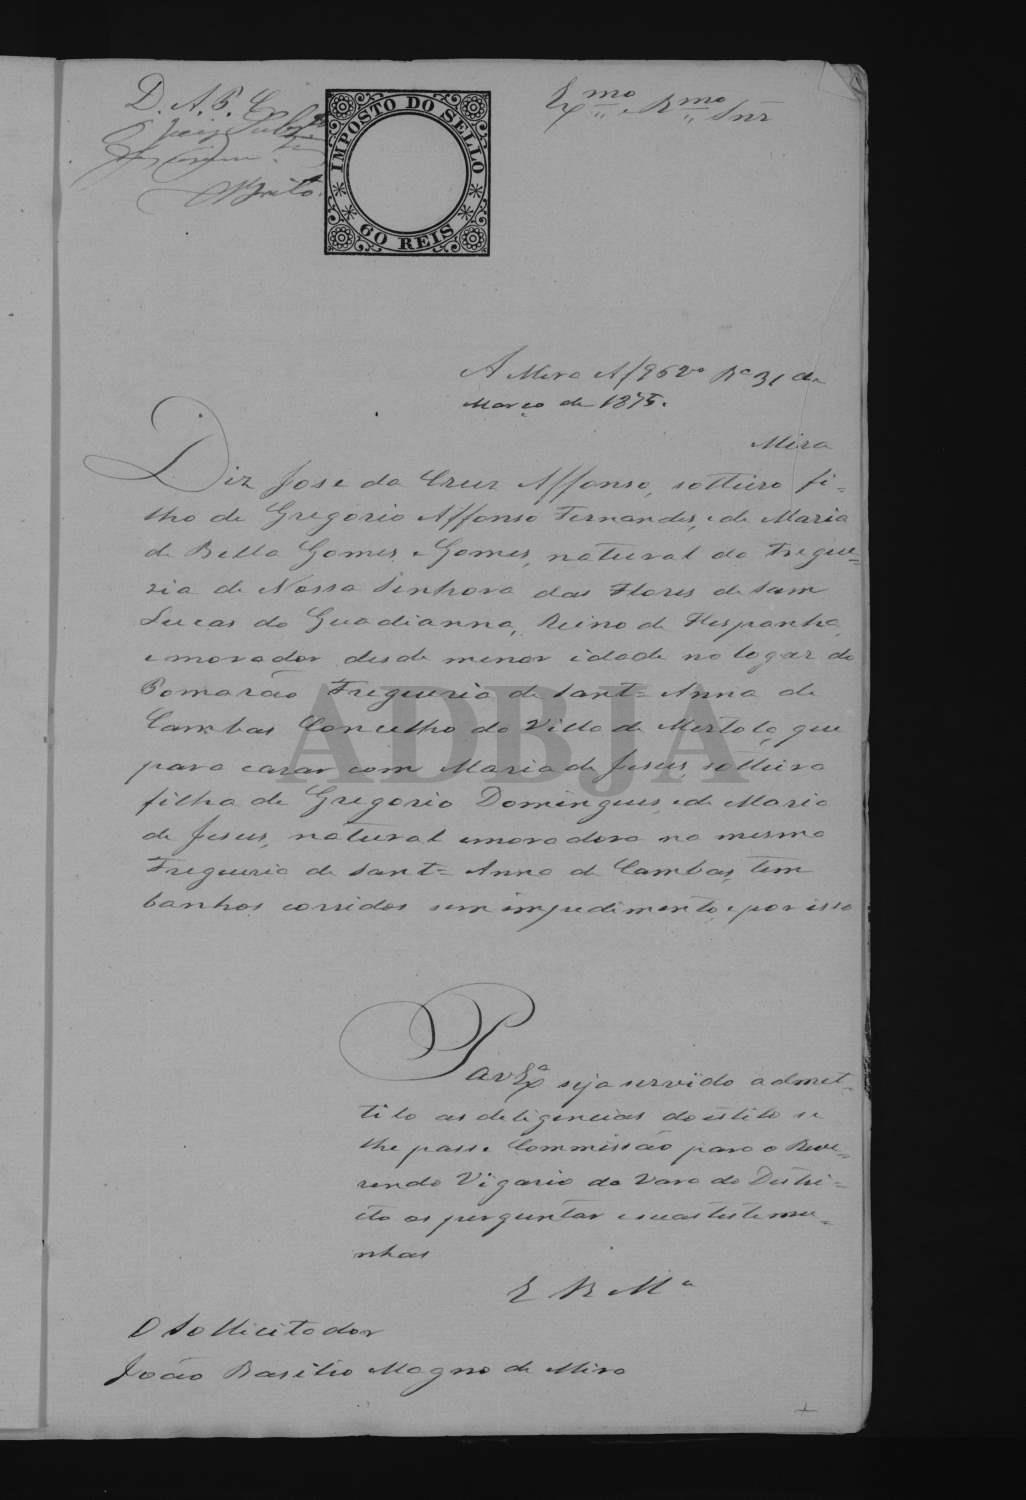 D. A. P. C.
Brito
IMPOSTO DO SELLO
60 REIS
Exmo Rmo Snr
A Mira
Março de 1875.
Mira
Diz Jose da Cruz Affonso, solteiro fi=
lho de Gregorio Affonso Fernandes, e de Maria
de Bella Gomes e Gomes, natural da Fregue=
zia de Nossa Sinhora das Flores de Sam
Lucas do Guadianna, Reino de Hespanha,
e morador desde menor idade no logar do
Pomarão Freguezia de Sant= Anna de
Cambas Concelho da Villa de Mertola, que
para cazar com Maria de Jesus, solteira
filha de Gregorio Domingues, e de Maria
de Jesus, natural e moradora na mesma
Freguezia de Sant= Anna de Cambas, tem
banhos corridos sem impedimento, e por isso
P a V Exª seja servido admet=
tilo as deligencias do estilo se
lhe passe Commissão para o Reve=
rendo Vigario da Vara do Destri=
cto os perguntar e suas testemu=
nhas
E R Mª
O Sollicitador
João Basilio Magno de Mira
ADBJA